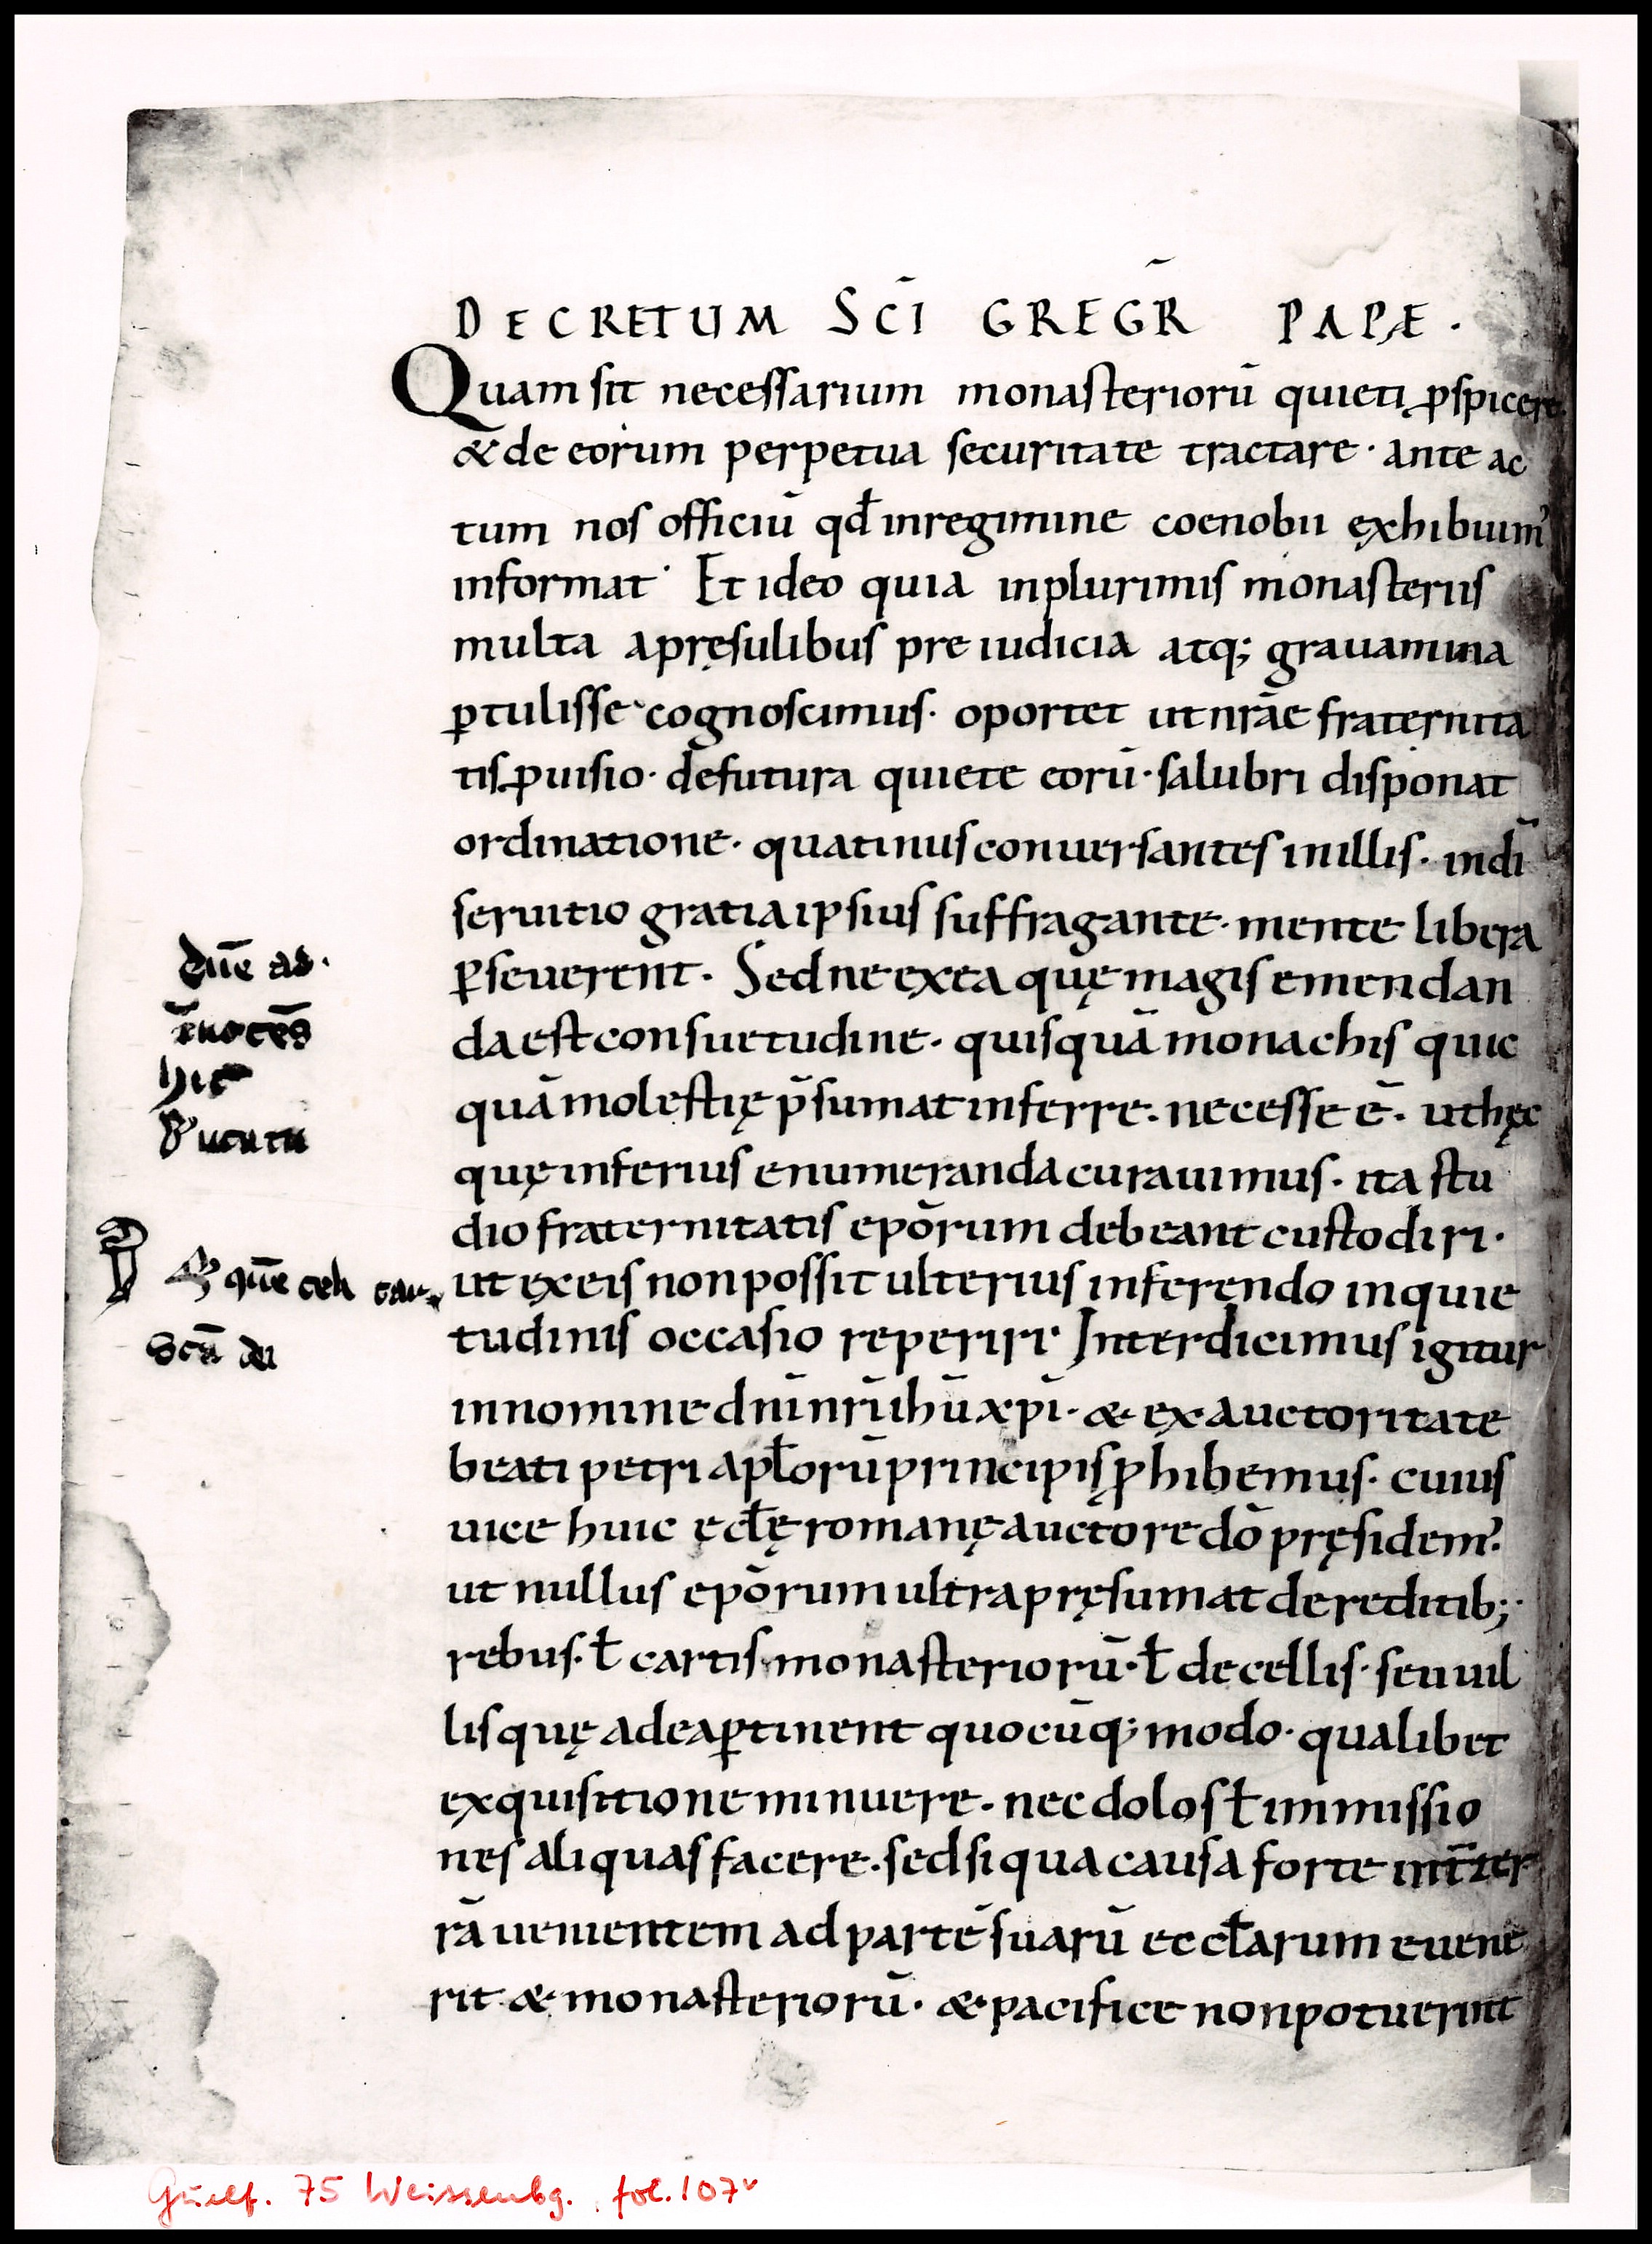 DECRETUM SC̄I GREGR̄ PAPÆ.
Quam sit necessarium monasteriorū quieti ꝓspicere.
& de eorum perpetua securitate tractare · ante ac
tum nos officiū qd̄ inregimine coenobii ęxhibuim᾽
informat · Et ideo quia inplurimis monasteriis
multa apręsulibus pre iudicia atq; grauamina
ꝑtulisse cognoscimus · oportet ut nrāe fraternita
tis ꝓuisio · defutura quiete eorū · salubri disponat
ordinatione · quatinus conuersantes inillis · indī
seruitio gratia ipsius suffragante · mente libera
ꝑseuerent · Sed ne exea quę magis emendan
da est consuetudine · quisquā monachis quic
quā molestię p̄sumat inferre · necesse ē · ut hęc
quę inferius enumeranda curauimus · ita stu
dio fraternitatis epōrum debeant custodiri ·
ut ex eis non possit ulterius inferendo inquie
tudinis occasio reperiri · Interdicimus igitur
innomine dnī nrī ihū xpī · & ex auctoritate
beati petri apl̄orū principis ꝓhibemus · cuius
uice huic ęcl̄ę romanę auctore dō pręsidem᾽
ut nullus epōrum ultra pręsumat de reditib; ·
rebus · l̄ cartis monasteriorū · l̄ de cellis · seu uil
lis quę ad ea ꝑtinent quocūq; modo · qualibet
exquisitione minuere · nec dolos l̄ inmissio
nes aliquas facere · sed si qua causa forte int̄ ter
rā uenientem ad partē suarū eccl̄arum euene
rit & monasteriorū · & pacifice non potuerint
dn̄e ad ·
hic
scā dei
Guelf. 75 Weissenbg. fol. 107v